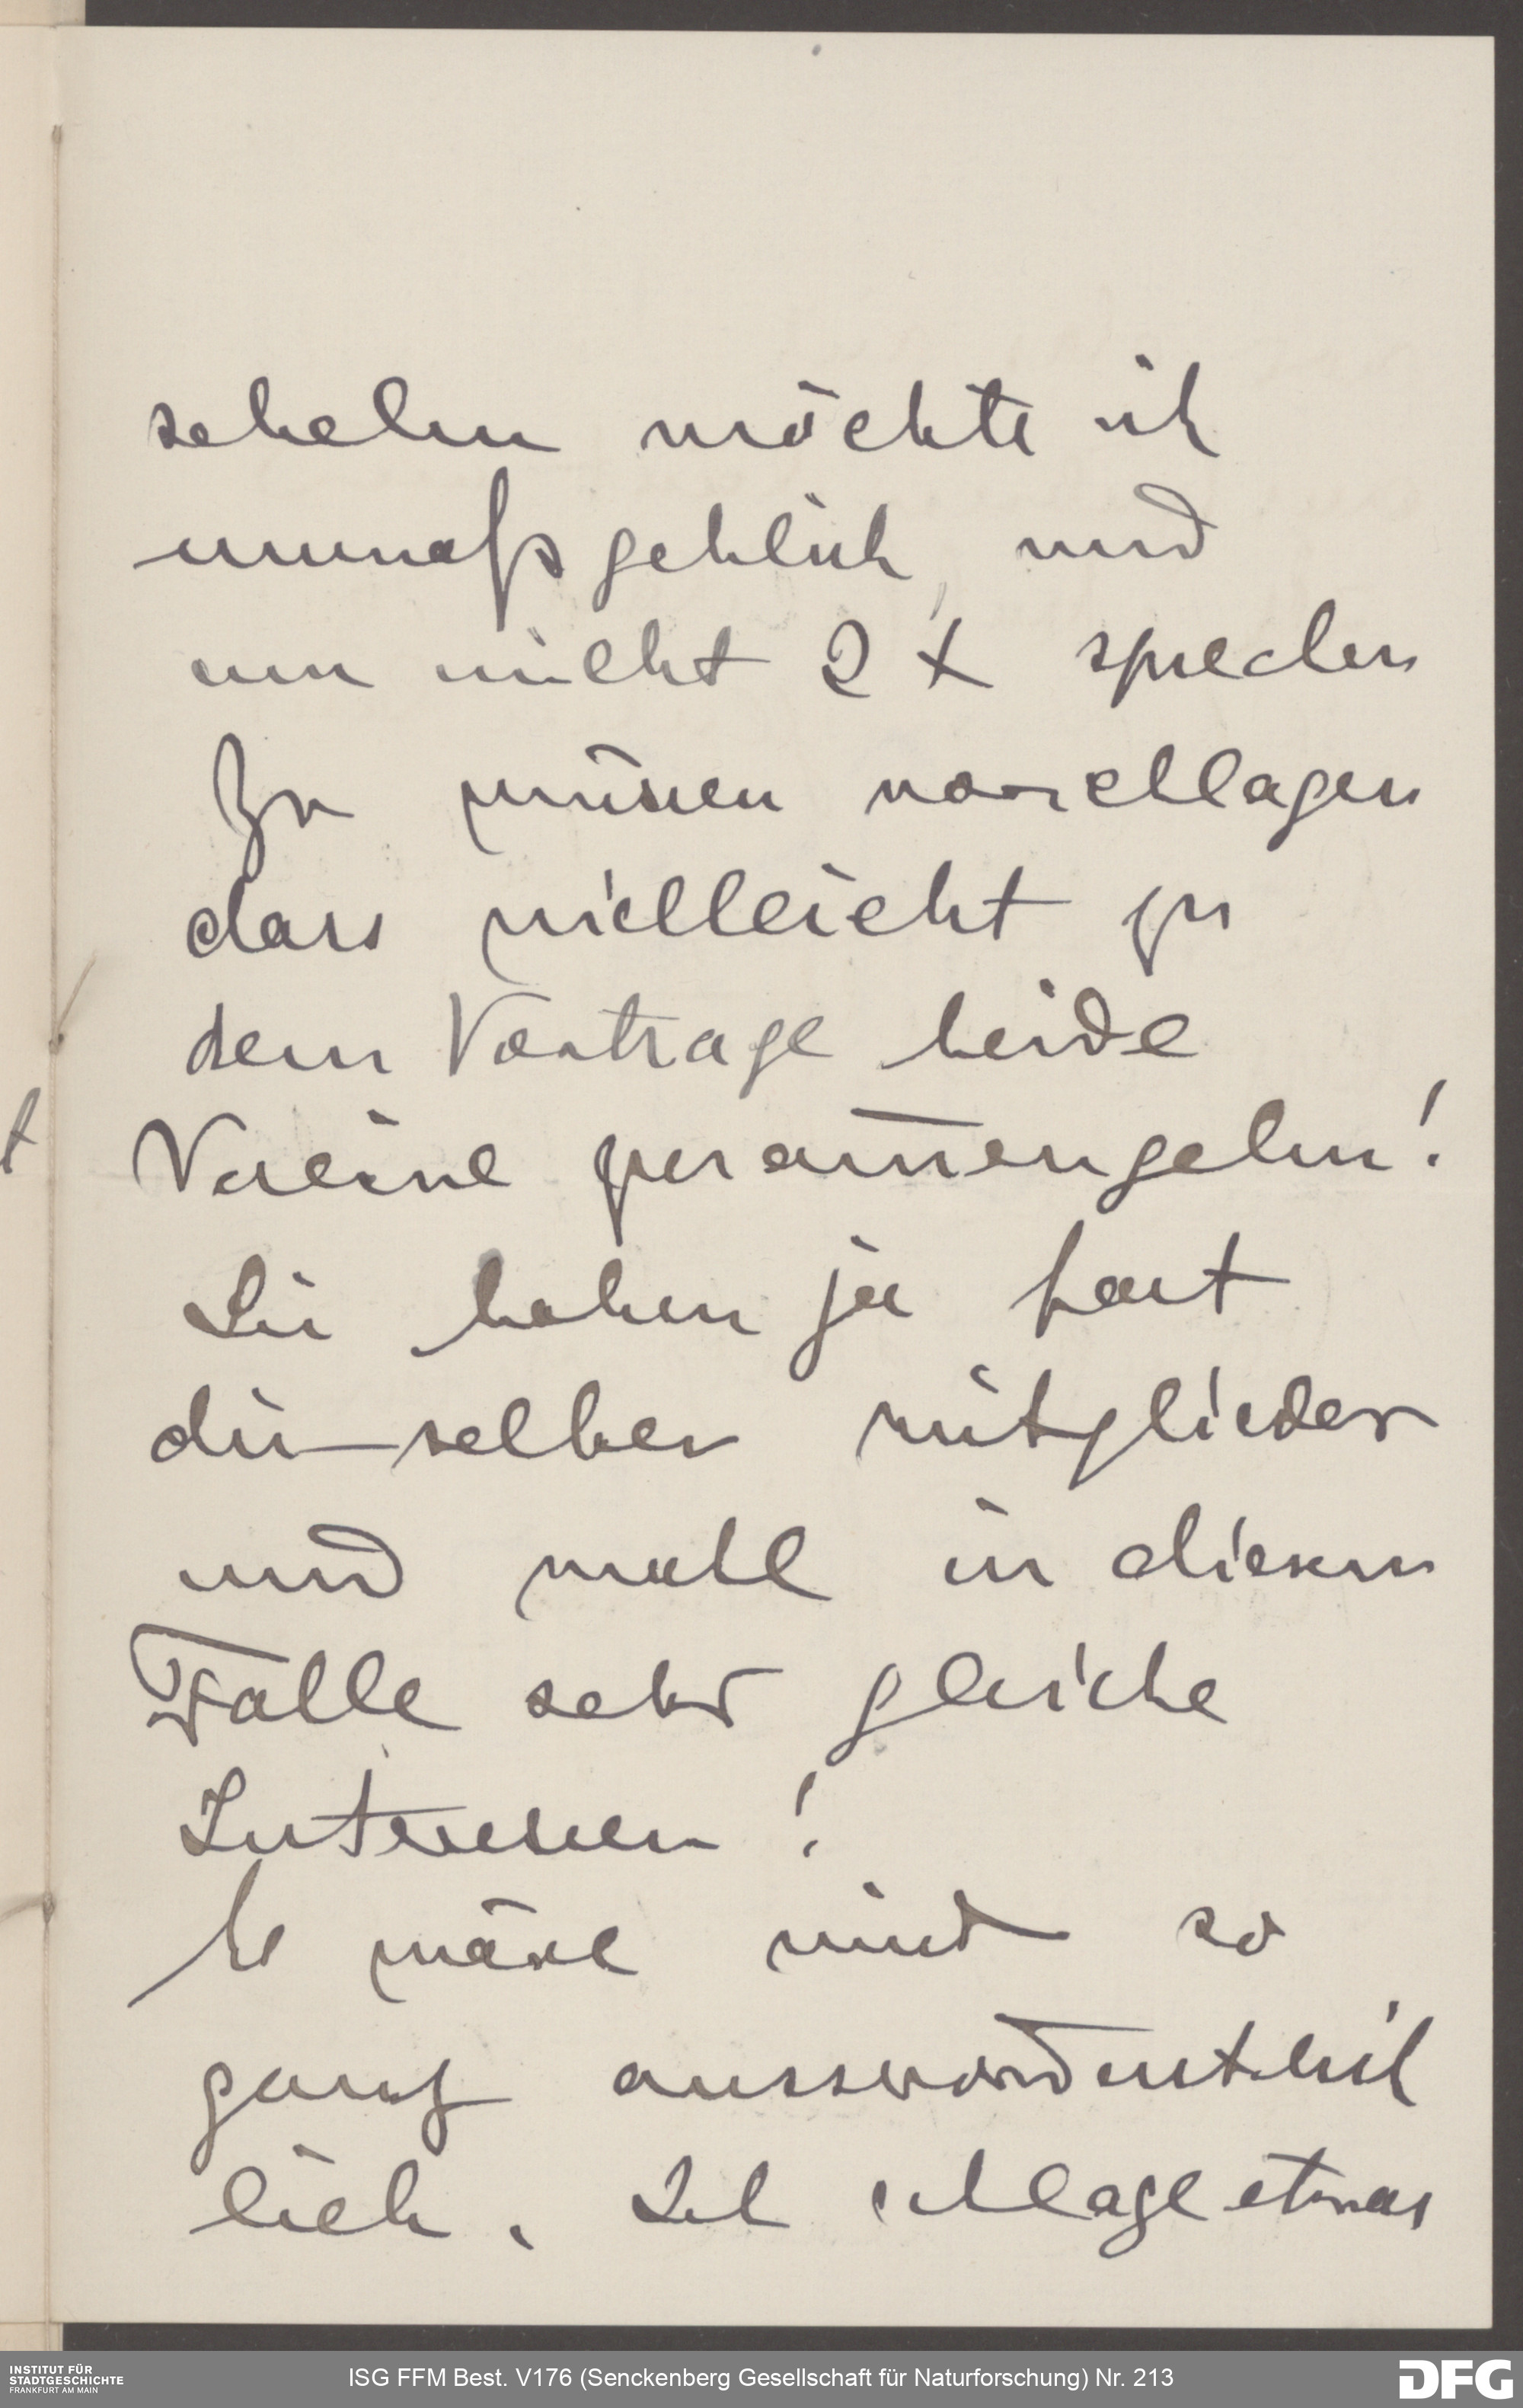 sehen möchte ich
unmaßgeblich, und
um nicht 2 x sprechen
zu müssen vorschlagen
dass vielleicht zu
dem Vortrage beide
Vereine zusam̄engehen!
Sie haben ja fast
dieselben Mitglieder
und wohl in diesem
Falle sehr gleiche
Interessen!
Es wäre mir so
ganz ausserordentlich
lieb. Ich schlage etwas
t
INSTITUT FÜR
STADTGESCHICHTE
FRANKFURT AM MAIN
ISG FFM Best. V176 (Senckenberg Gesellschaft für Naturforschung) Nr. 213
DFG